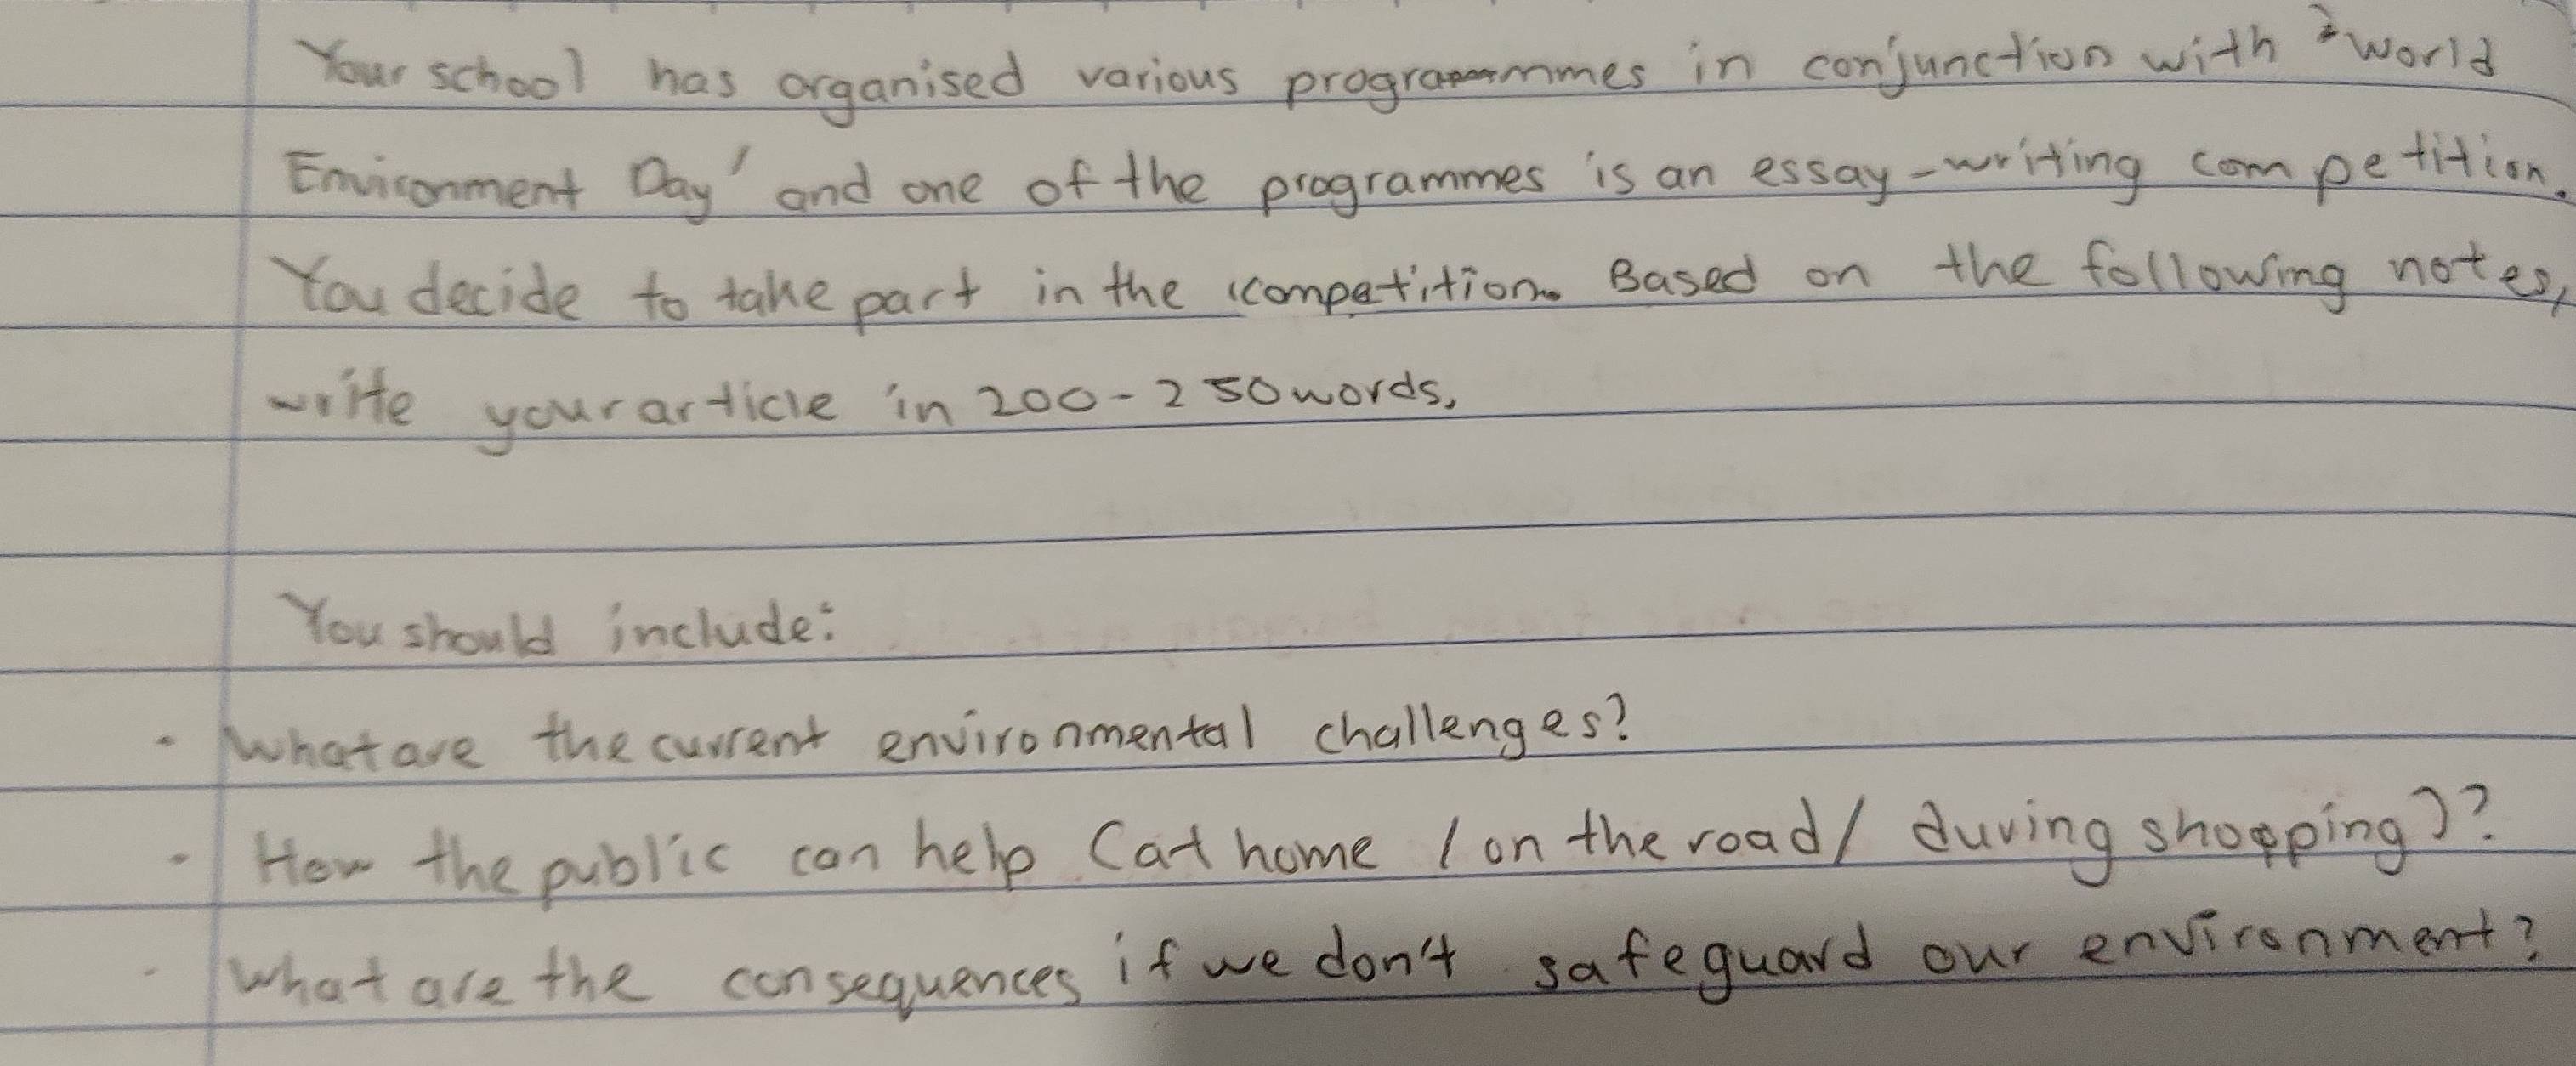 Your school has organised various programmmes in conjunction with 'World
Environment Day' and one of the programmes is an essay-writing competition.
You decide to take part in the competition. Based on the following notes,
write your article in 200-250 words.
You should include:
- What are the current environmental challenges?
- How the public can help (at home / on the road / during shopping)?
- What are the consequences if we don't safeguard our environment?